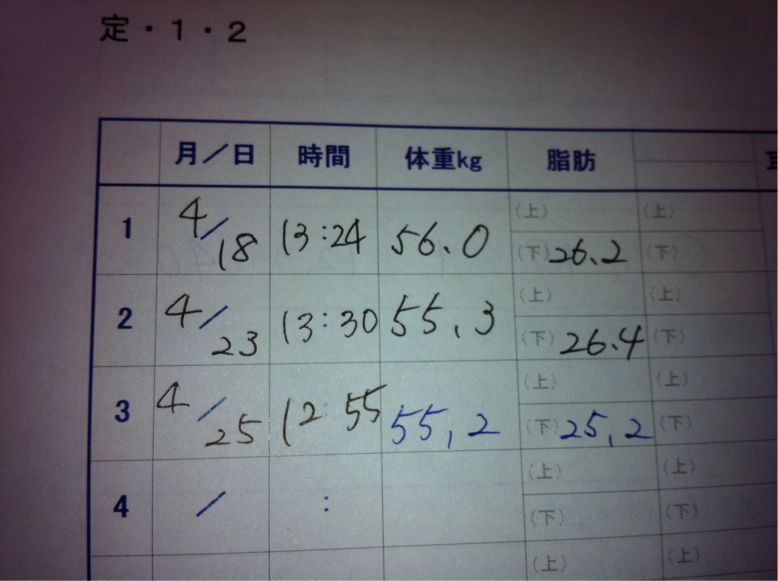 定・1・2
月／日 時間 体重kg 脂肪
(上) (上)
1 4/18 13:24 56.0 (下)26.2 (下)
(上) (上)
2 4/23 13:30 55.3 (下)26.4 (下)
(上) (上)
3 4/25 12:55 55.2 (下)25.2 (下)
(上) (上)
4 / : (下) (下)
(上) (上)